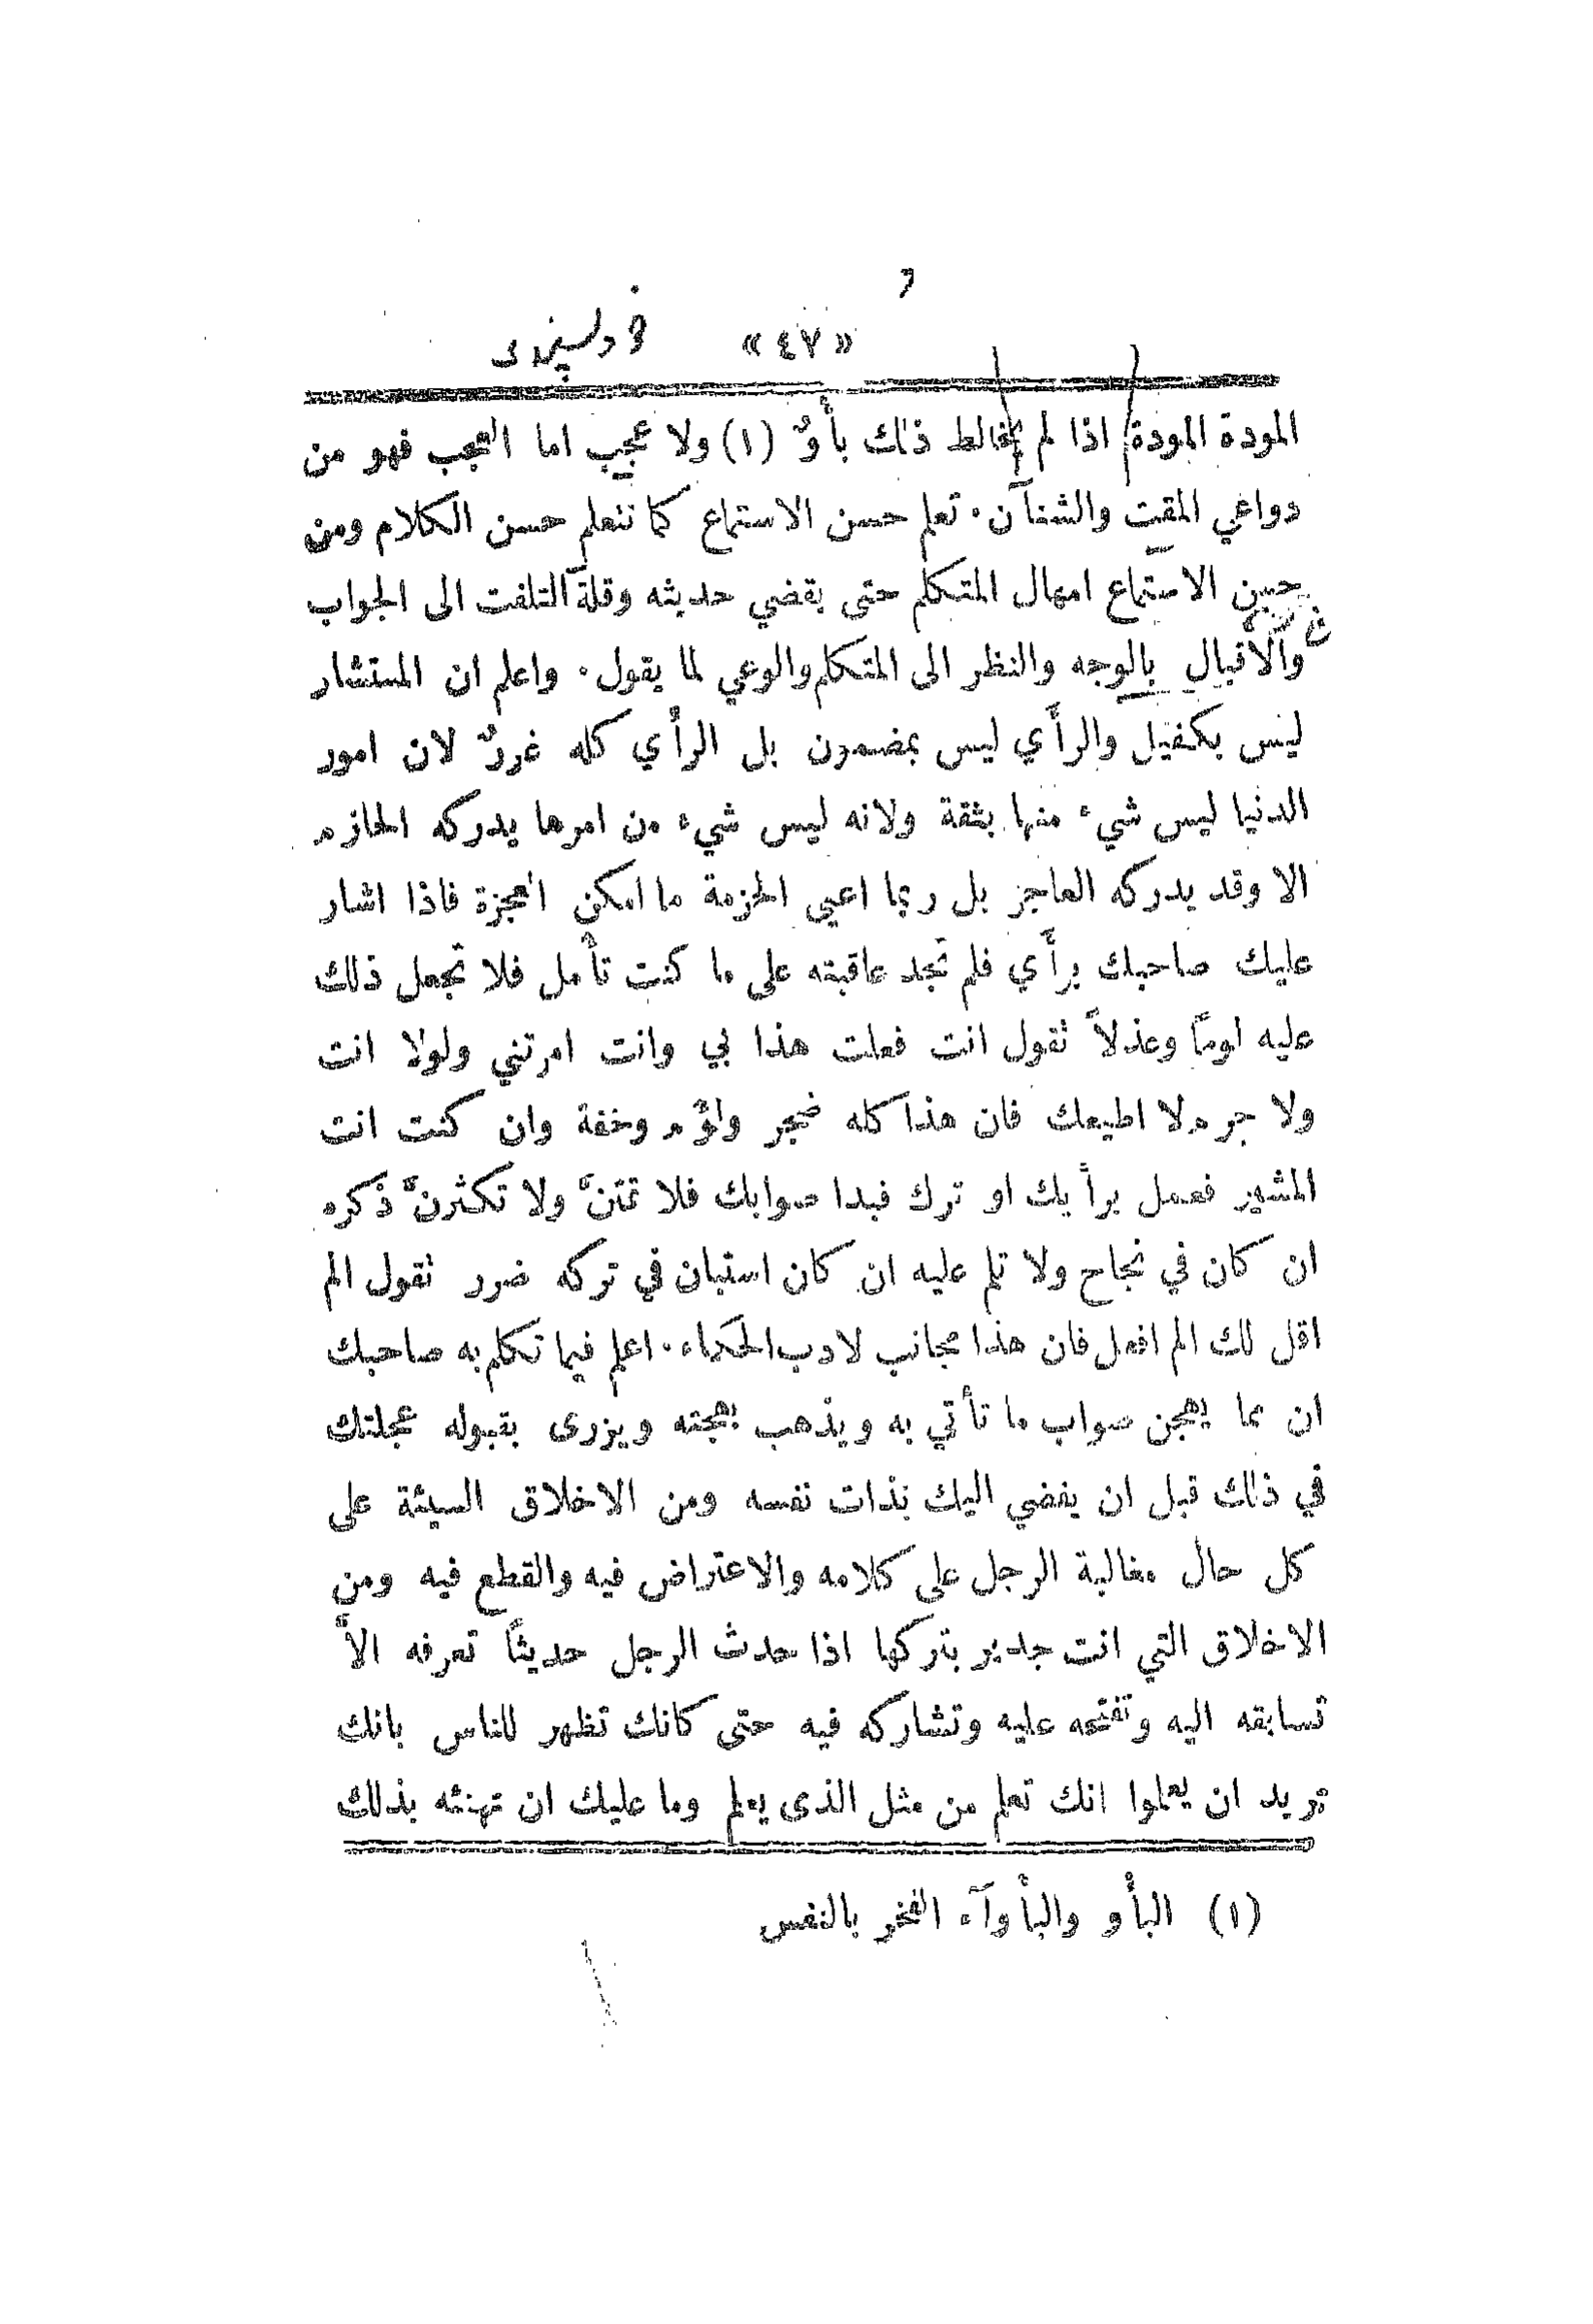 «٤٧»
المودة المودة اذا لم يخالط ذلك بأوٌ (١) ولا عجب اما العجب فهو من
دواعي المقت والشنآن. تعلم حسن الاستماع كما نتعلم حسن الكلام ومن
حسن الاستماع امهال المتكلم حتى يقضي حديثه وقلة التلفت الى الجواب
والاقبال بالوجه والنظر الى المتكلم والوعي لما يقول. واعلم ان المستشار
ليس بكفيل والرأي ليس بمضمون بل الرأي كله غررٌ لان امور
الدنيا ليس شيء منها بثقة ولانه ليس شيء من امرها يدركه الحازم
الا وقد يدركه العاجز بل ربما اعيى الحزمة ما امكن العجزة فاذا اشار
عليك صاحبك برأي فلم تجد عاقبته على ما كنت تأمل فلا تجعل ذلك
عليه لومًا وعذلاً نقول انت فعلت هذا بي وانت امرتني ولولا انت
ولا جرم لا اطيعك فان هذا كله ضجر ولؤم وخفة وان كنت انت
المشير فعمل برأيك او ترك فبدا صوابك فلا تمتنَّ ولا تكثرنَّ ذكره
ان كان في نجاح ولا تلم عليه ان كان استبان في تركه ضرر نقول الم
اقل لك الم افعل فان هذا مجانب لادب الحكماء. اعلم فيما تكلم به صاحبك
ان مما يهجن صواب ما تأتي به ويذهب بهجته ويزرى بقبوله عجلتك
في ذلك قبل ان يفضي اليك بذات نفسه ومن الاخلاق السيئة على
كل حال مغالبة الرجل على كلامه والاعتراض فيه والقطع فيه ومن
الاخلاق التي انت جدير بتركها اذا حدث الرجل حديثًا تعرفه الاَّ
تسابقه اليه وتفتحه عليه وتشاركه فيه حتى كانك تظهر للناس بانك
تريد ان يعلموا انك تعلم من مثل الذى يعلم وما عليك ان تهنئه بذلك
(١) البأو والبأوآء الفخر بالنفس